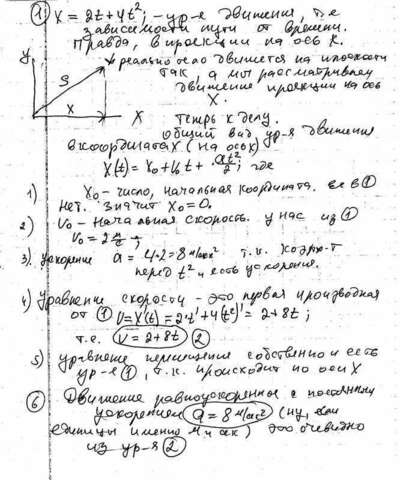 ① X = 2t + 4t²; - ур-е движения, т.е
зависимости пути от времени.
Правда, в проекции на ось X.
y
реально тело движется на плоскости
S
так, а мы рассматриваем
движение проекции на ось
X
X.
X
Теперь к делу.
Общий вид ур-я движения
в координатах (на оси x)
X(t) = X₀ + V₀t + at²/2; где
1) X₀ - число, начальная координата. её в ①
нет. Значит X₀ = 0.
2) V₀ - начальная скорость. у нас из ①
V₀ = 2 м/с;
3). ускорение a = 4·2 = 8 м/сек² т.к. коэф-т
перед t² и есть ускорения.
4) Уравнение скорости - это первая производная
от ① V = X'(t) = 2·t' + 4(t²)' = 2 + 8t;
т.е. V = 2 + 8t ②
5) ур-внение перемещения собственно и есть
ур-е ①, т.к. происходит по оси X
⑥ Движение равноускоренное с постоянным
ускорением a = 8 м/сек² (ну, если
единицы именно м и сек) это очевидно
из ур-я ②